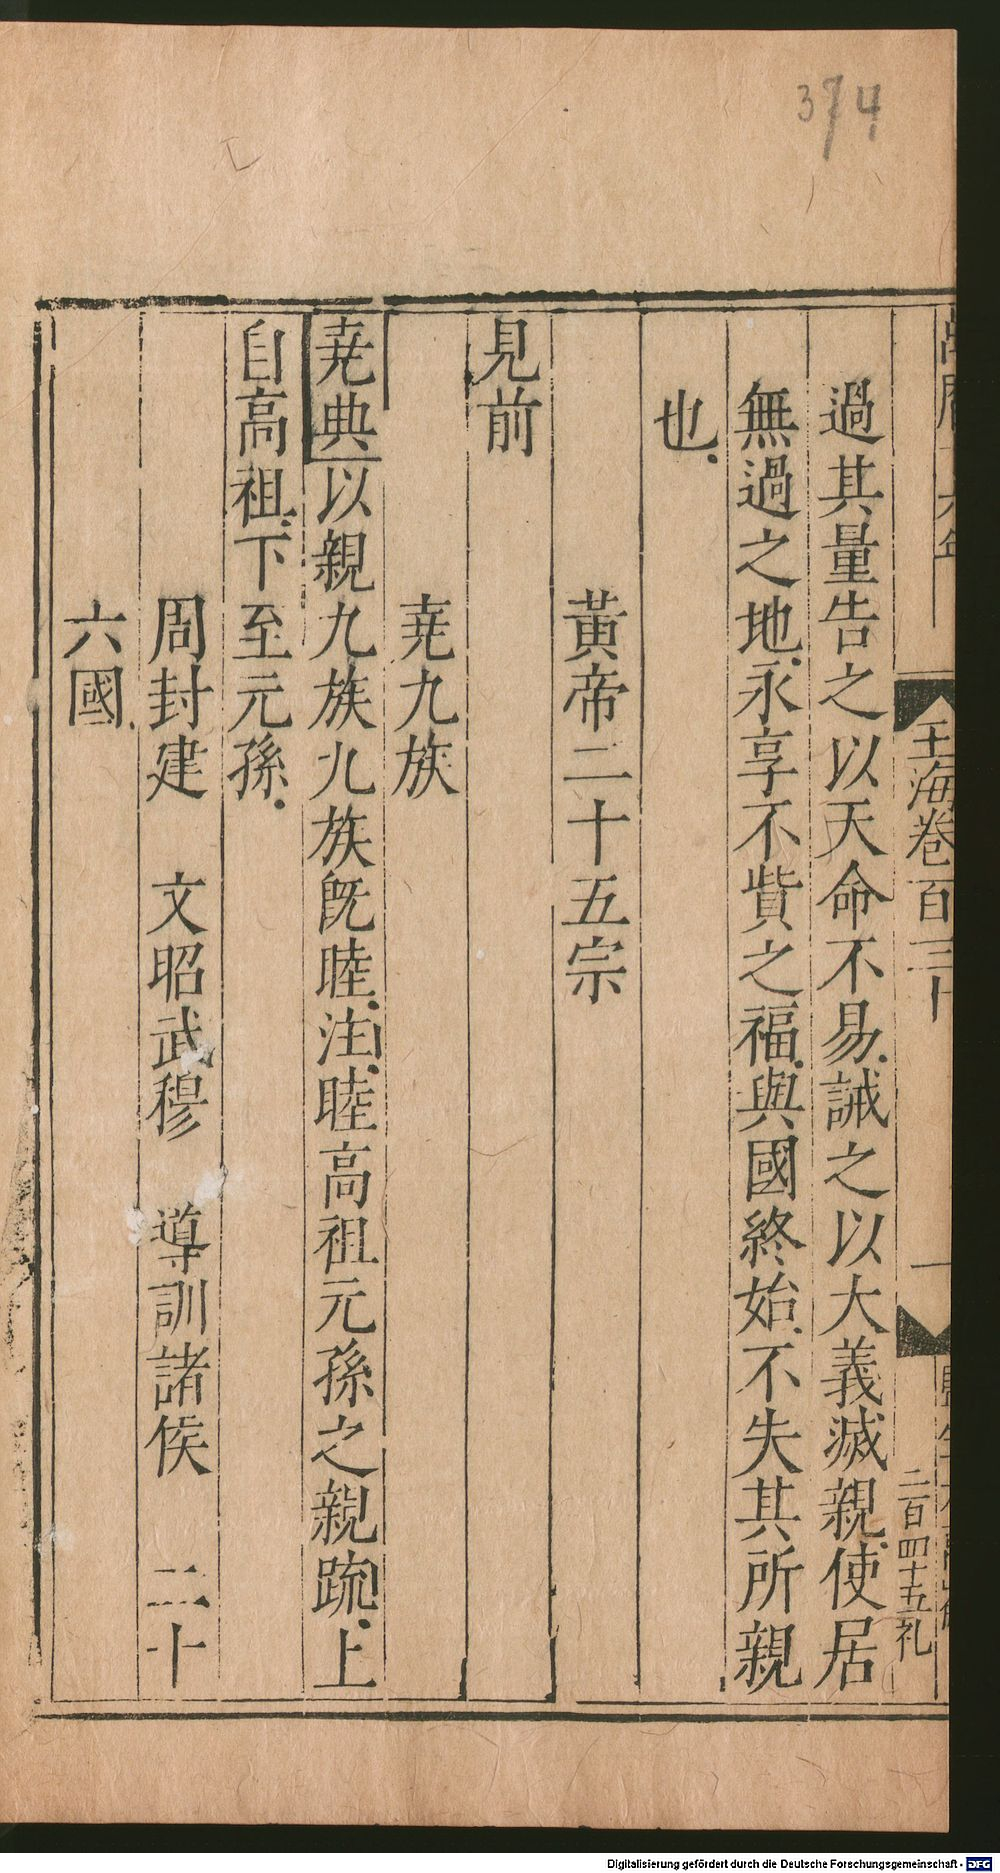 374
萬曆十六年
玉海卷百三十
一
二百四十五礼
過其量告之以天命不易誡之以大義滅親使居
無過之地永享不貲之福與國終始不失其所親
也
黃帝二十五宗
見前
堯九族
堯典以親九族九族旣睦注睦高祖元孫之親䟽上
自高祖下至元孫
周封建　文昭武穆　導訓諸侯　二十
六國
Digitalisierung gefördert durch die Deutsche Forschungsgemeinschaft - DFG